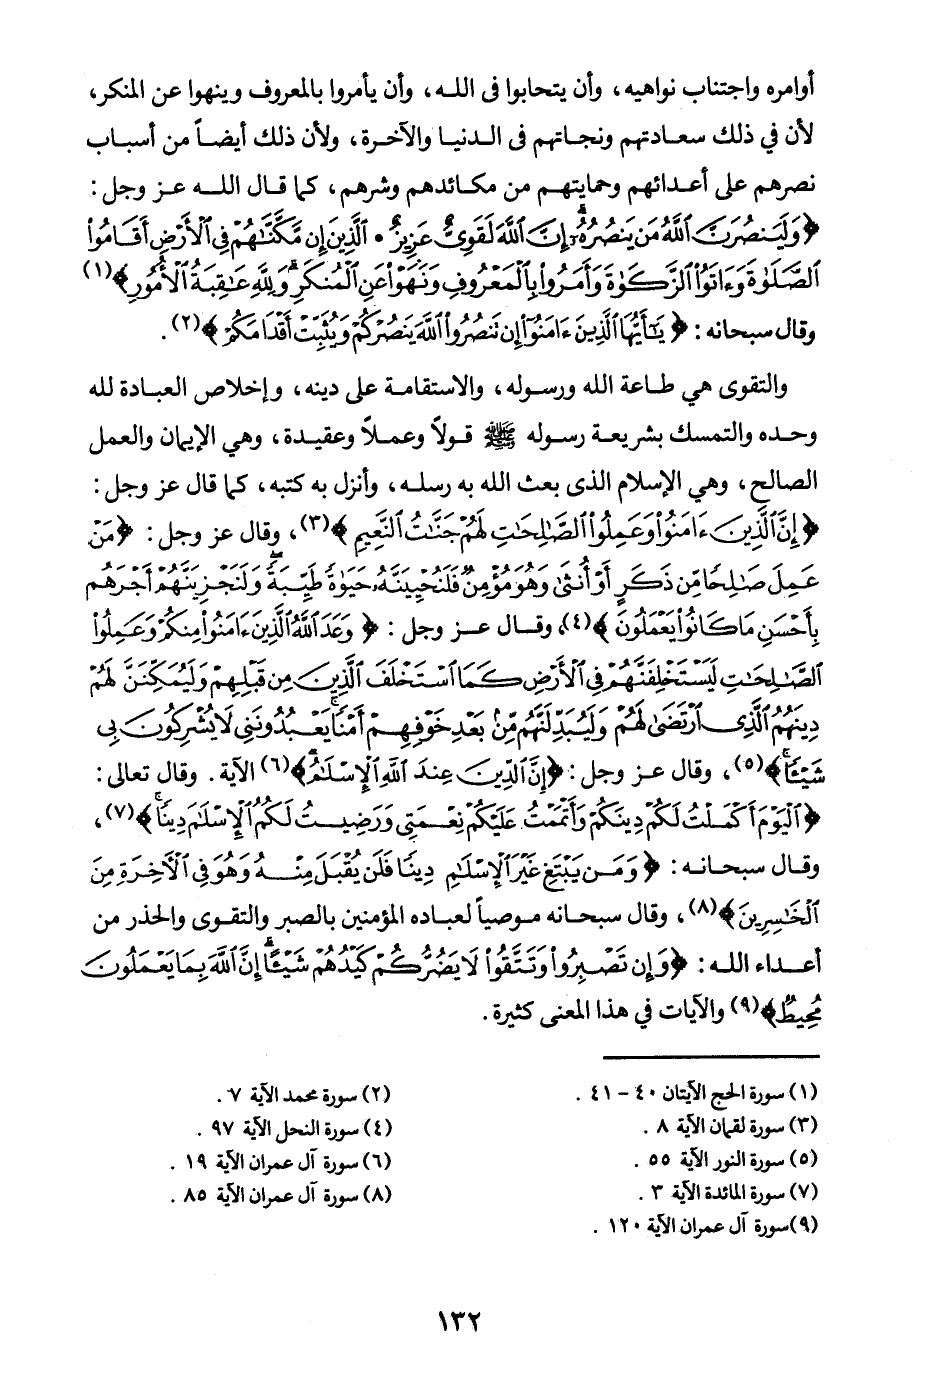 أوامره واجتناب نواهيه، وأن يتحابوا فى اللـه، وأن يأمروا بالمعروف وينهوا عن المنكر،
لأن في ذلك سعادتهم ونجاتهم فى الدنيا والآخرة، ولأن ذلك أيضاً من أسباب
نصرهم على أعدائهم وحمايتهم من مكائدهم وشرهم، كما قال اللـه عز وجل:
﴿وَلَيَنصُرَنَّ ٱللَّهُ مَن يَنصُرُهُۥٓ إِنَّ ٱللَّهَ لَقَوِىٌّ عَزِيزٌ • ٱلَّذِينَ إِن مَّكَّنَّٰهُمْ فِى ٱلْأَرْضِ أَقَامُوا۟
ٱلصَّلَوٰةَ وَءَاتَوُا۟ ٱلزَّكَوٰةَ وَأَمَرُوا۟ بِٱلْمَعْرُوفِ وَنَهَوْا۟ عَنِ ٱلْمُنكَرِ وَلِلَّهِ عَٰقِبَةُ ٱلْأُمُورِ﴾(١)
وقال سبحانه: ﴿يَٰٓأَيُّهَا ٱلَّذِينَ ءَامَنُوٓا۟ إِن تَنصُرُوا۟ ٱللَّهَ يَنصُرْكُمْ وَيُثَبِّتْ أَقْدَامَكُمْ﴾(٢).
والتقوى هي طـاعة الله ورسوله، والاستقامة على دينه، وإخلاص العبادة لله
وحده والتمسك بشريعة رسوله ﷺ قولاً وعملاً وعقيدة، وهي الإيمان والعمل
الصالح، وهي الإسلام الذى بعث الله به رسله، وأنزل به كتبه، كما قال عز وجل:
﴿إِنَّ ٱلَّذِينَ ءَامَنُوا۟ وَعَمِلُوا۟ ٱلصَّٰلِحَٰتِ لَهُمْ جَنَّٰتُ ٱلنَّعِيمِ﴾(٣)، وقال عز وجل: ﴿مَنْ
عَمِلَ صَٰلِحًا مِّن ذَكَرٍ أَوْ أُنثَىٰ وَهُوَ مُؤْمِنٌ فَلَنُحْيِيَنَّهُۥ حَيَوٰةً طَيِّبَةً وَلَنَجْزِيَنَّهُمْ أَجْرَهُم
بِأَحْسَنِ مَا كَانُوا۟ يَعْمَلُونَ﴾(٤)، وقـال عـز وجل: ﴿وَعَدَ ٱللَّهُ ٱلَّذِينَ ءَامَنُوا۟ مِنكُمْ وَعَمِلُوا۟
ٱلصَّٰلِحَٰتِ لَيَسْتَخْلِفَنَّهُمْ فِى ٱلْأَرْضِ كَمَا ٱسْتَخْلَفَ ٱلَّذِينَ مِن قَبْلِهِمْ وَلَيُمَكِّنَنَّ لَهُمْ
دِينَهُمُ ٱلَّذِى ٱرْتَضَىٰ لَهُمْ وَلَيُبَدِّلَنَّهُم مِّنۢ بَعْدِ خَوْفِهِمْ أَمْنًا يَعْبُدُونَنِى لَا يُشْرِكُونَ بِى
شَيْـًٔا﴾(٥)، وقال عـز وجل: ﴿إِنَّ ٱلدِّينَ عِندَ ٱللَّهِ ٱلْإِسْلَٰمُ﴾(٦) الآية. وقال تعالى:
﴿ٱلْيَوْمَ أَكْمَلْتُ لَكُمْ دِينَكُمْ وَأَتْمَمْتُ عَلَيْكُمْ نِعْمَتِى وَرَضِيتُ لَكُمُ ٱلْإِسْلَٰمَ دِينًا﴾(٧)،
وقـال سبحانـه: ﴿وَمَن يَبْتَغِ غَيْرَ ٱلْإِسْلَٰمِ دِينًا فَلَن يُقْبَلَ مِنْهُ وَهُوَ فِى ٱلْءَاخِرَةِ مِنَ
ٱلْخَٰسِرِينَ﴾(٨)، وقال سبحانه موصياً لعباده المؤمنين بالصبر والتقوى والحذر من
أعـداء اللـه: ﴿وَإِن تَصْبِرُوا۟ وَتَتَّقُوا۟ لَا يَضُرُّكُمْ كَيْدُهُمْ شَيْـًٔا إِنَّ ٱللَّهَ بِمَا يَعْمَلُونَ
مُحِيطٌ﴾(٩) والآيات في هذا المعنى كثيرة.
(١) سورة الحج الآيتان ٤٠ – ٤١.
(٢) سورة محمد الآية ٧.
(٣) سورة لقمان الآية ٨.
(٤) سورة النحل الآية ٩٧.
(٥) سورة النور الآية ٥٥.
(٦) سورة آل عمران الآية ١٩.
(٧) سورة المائدة الآية ٣.
(٨) سورة آل عمران الآية ٨٥.
(٩) سورة آل عمران الآية ١٢٠.
١٣٢